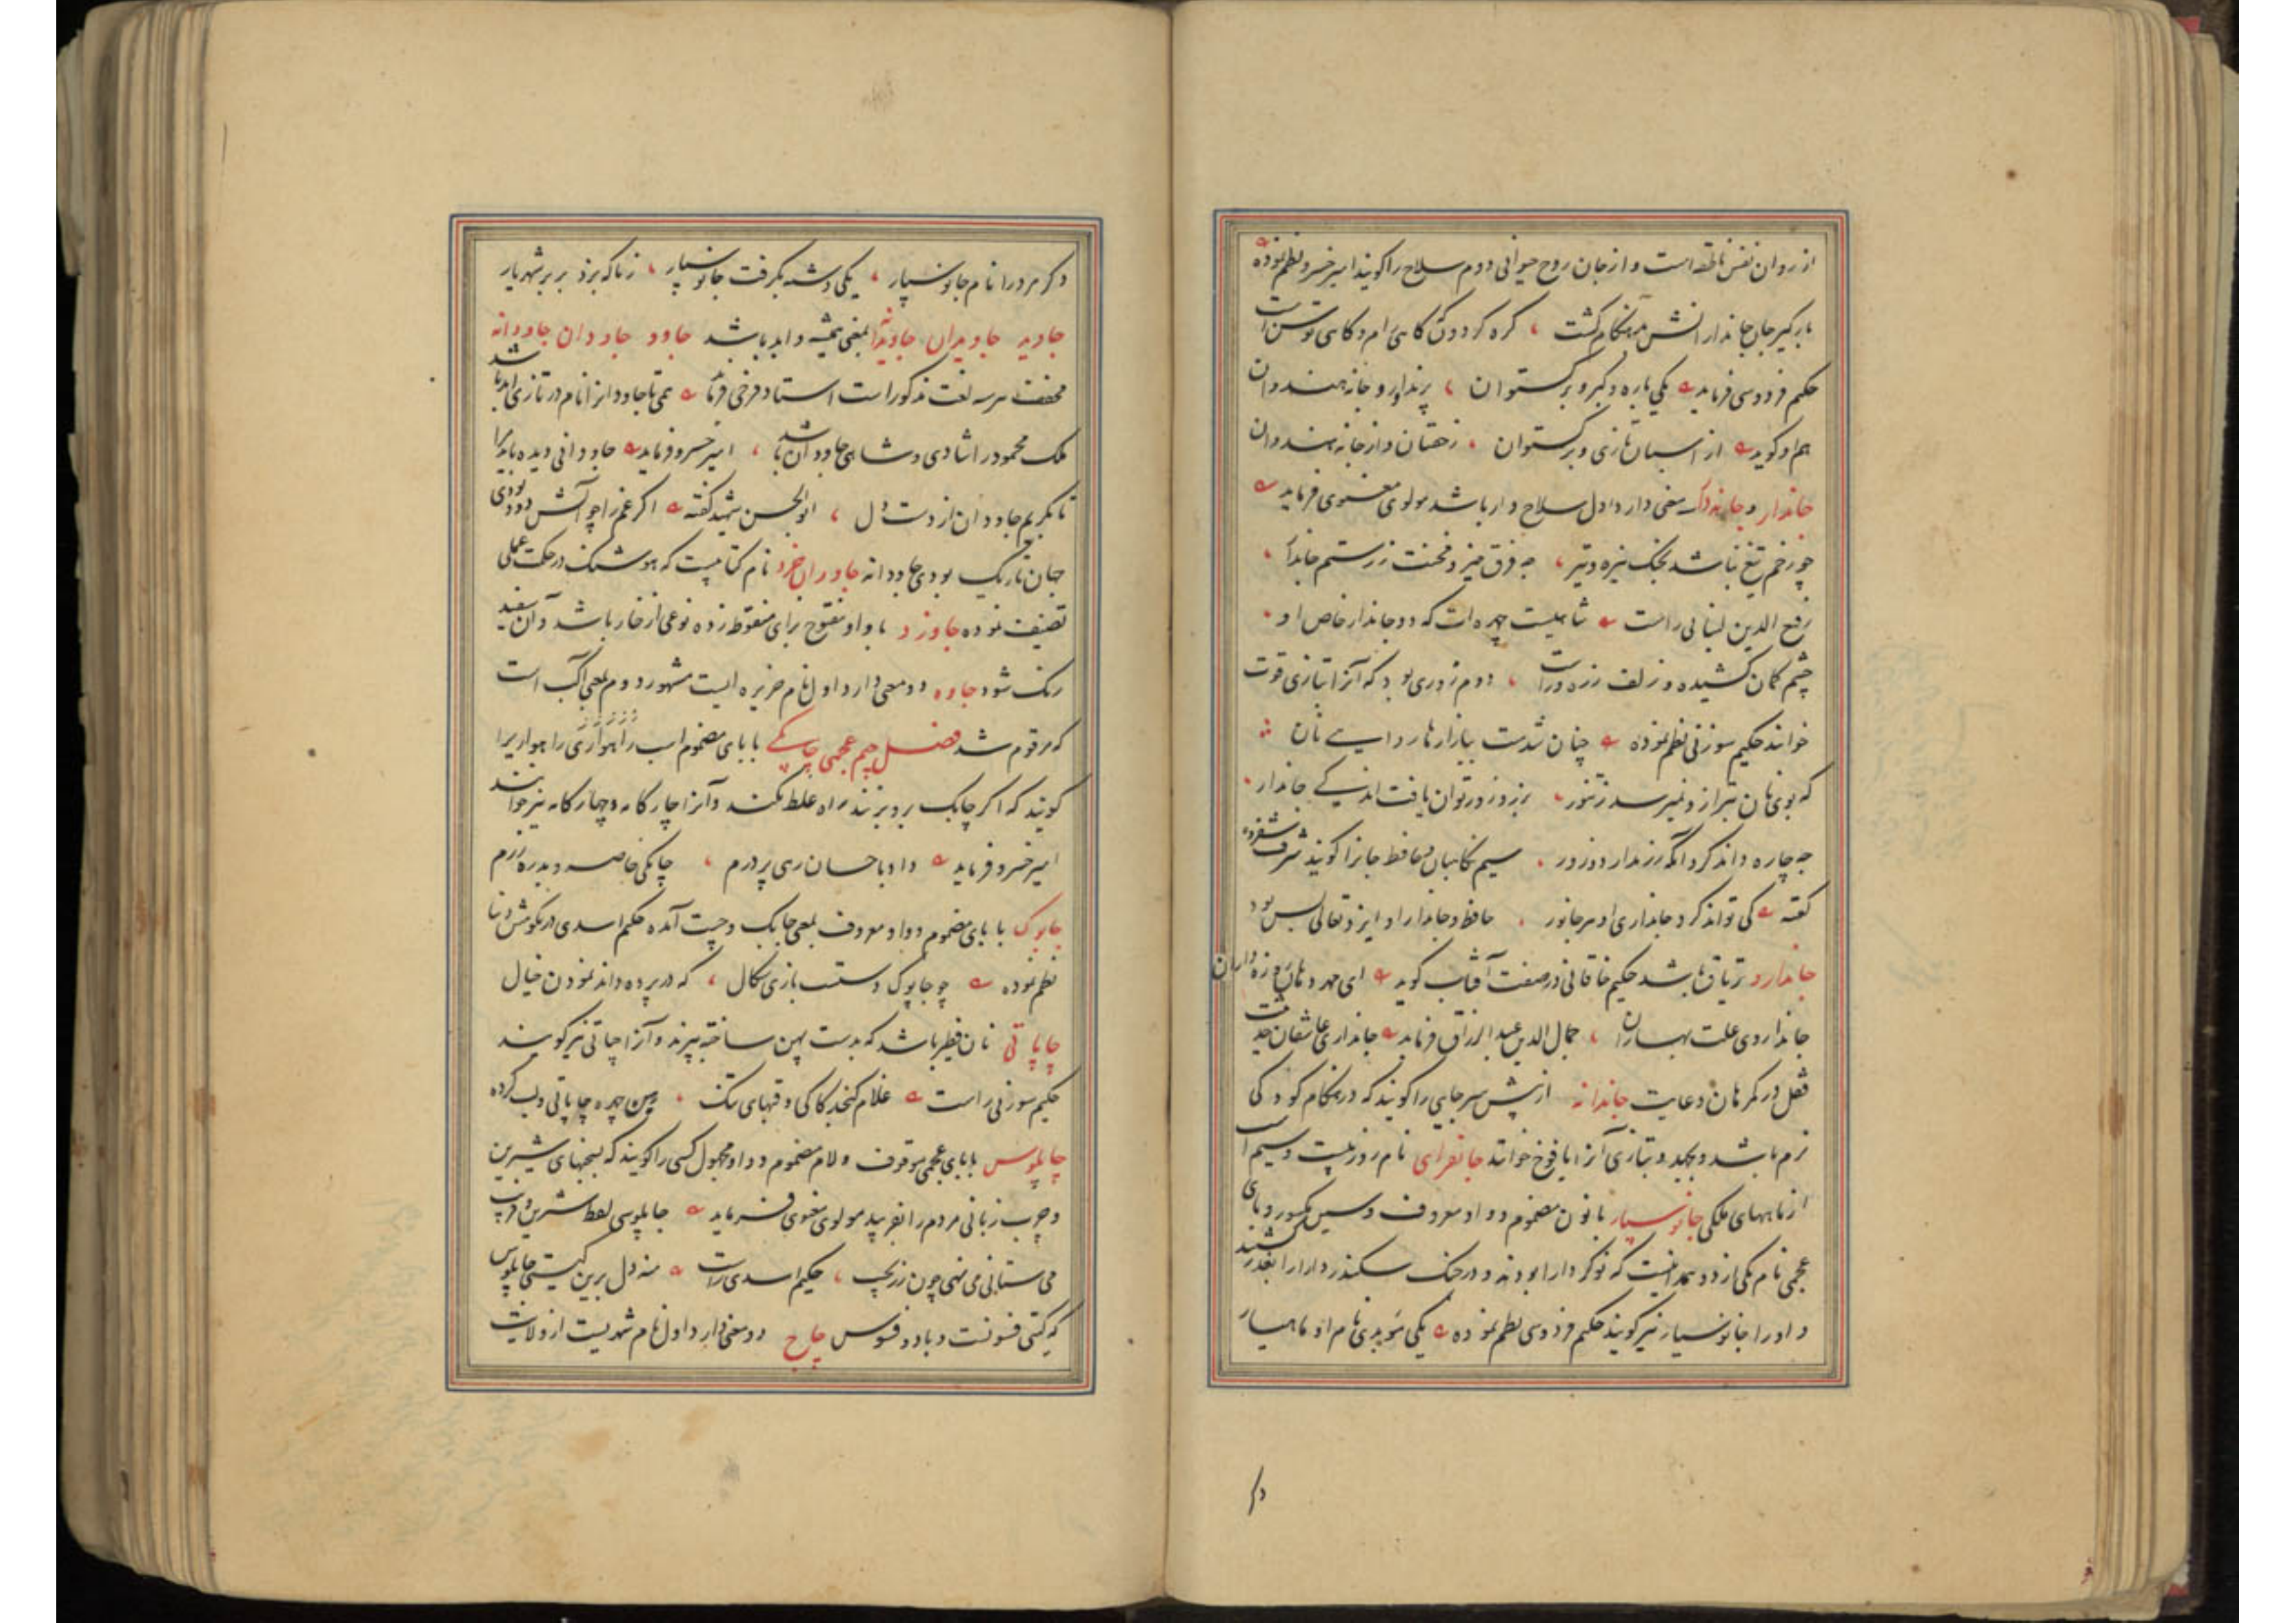 از روان نفس ناطقه است و از جان روح حیوانی دوم سلاح را کویند امیر خسرو نظم نموده
بارکیر جان جاندارانش هنکام کشت کره کردون کاهی رام و کاهی توسن است
حکیم فردوسی فرماید یکی باره و کبر و برکستوان پرندآور و جانه هندوان
هم او کوید از اسبان تازی و برکستوان ز خفتان و از جانه هندوان
جاندار و جانه‌دار سه معنی دارد اول سلاح دار باشد مولوی معنوی فرماید
چو زخم تیغ نباشد بجنک نیزه و تیر چه فرق حیز و مخنث ز رستم جاندار
رفیع الدین لنبانی راست شاهیست چهره‌ات که دو جاندار خاص او
چشم کمان کشیده و زلف زره‌ور است دوم زوری بود که آنرا بتازی قوت
خوانند حکیم سوزنی نظم نموده چنان شدست ببازارها روایی نان
که بوی نان بترازو نمیرسد ز تنور بزور و زر توان یافت اندکی جاندار
چه چاره داند کرد آنکه زر ندارد و زور سیم نکاهبان و محافظ جانرا کویند شرف شفروه
کفته کی تواند کرد جانداری او هر جانور حافظ و جاندار او ایزد تعالی بس بود
جاندارو تریاق باشد حکیم خاقانی در صفت آفتاب کوید ای مهر دهان روزه‌داران
جانداروی علت بهاران جمال الدین عبد الرزاق فرماید جانداری عاشقان حدیثت
قفل در کمرهان دعایت جاندانه از پیش سر جایی را کویند که در هنکام کودکی
نرم باشد و بجهد و بتازی آنرا یافوخ خوانند جانفزای نام روز بیست و سیم است
از ماههای ملکی جانوسپار با نون مضموم و واو معروف و سین مکسور و بای
عجمی نام یکی از دو همدانیست که نوکر دارا بودند و در جنک سکندر دارا را بغدر کشتند
و او را جانوسیار نیز کویند حکیم فردوسی نظم نموده یکی موبدی نام او ماهیار
دکر
دکر مرد را نام جانوسپار یکی دشنه بکرفت جانوسپار زناکه بزد بر بر شهریار
جاوید جاویدان جاویدانه بمعنی همیشه و ابد باشد جاود جاودان جاودانه
مخفف هر سه لغت مذکور است استاد فرخی فرماید همی تا جاودانرا نام در تازی ابد باشد
ملک محمود را شادی و شاهی جاودان باشد امیر خسرو فرماید جاودانی دیده باید مرا
تا بکریم جاودان از دست دل ابو الحسن شهید کفته اکر غم را چو آتش دود بودی
جهان تاریک بودی جاودانه جاودان خرد نام کتابیست که هوشنک در حکمت عملی
تصنیف نموده جاورزد با واو مفتوح برای منقوط زده نوعی از خار باشد و آن سفید
رنک شود جاوه دو معنی دارد اول نام جزیره ایست مشهور دوم بمعنی جاکب است
که مرقوم شد فصل جیم عجمی چابکی با بای مضموم اسب راهواری را هواریرا
کویند که اکر چابک برو بزنند راه غلط نکند و آنرا چارکامه و چهارکامه نیز خوانند
امیر خسرو فرماید داد باحسان رهی پر درم چابکی خاصه و بدره درم
چابوک با بای مضموم و واو معروف بمعنی چابک و چست آمده حکیم اسدی در نکوهش دنیا
نظم نموده چو چابوک دستست بازی سکال که در پرده داند نمودن خیال
چاپاتی نان فطیر باشد که بدست پهن ساخته بپزند و آنرا چپاتی نیز کویند
حکیم سوزنی راست غلام کنجد کاکی و قبهای تنک پهن چهره چاپاتی و لب کرده
چاپلوس با بای عجمی موقوف و لام مضموم و واو مجهول کسی را کویند که بسخنهای شیرین
و چرب زبانی مردم را بفریبد مولوی معنوی فرماید چاپلوسی لفظ شیرین و فریب
می ستانی می نهی چون زر بجیب حکیم اسدی راست منه دل برین کیتی چاپلوس
که کیتی فسونست و باد و فسوس چاچ دو معنی دارد اول نام شهریست از ولایت